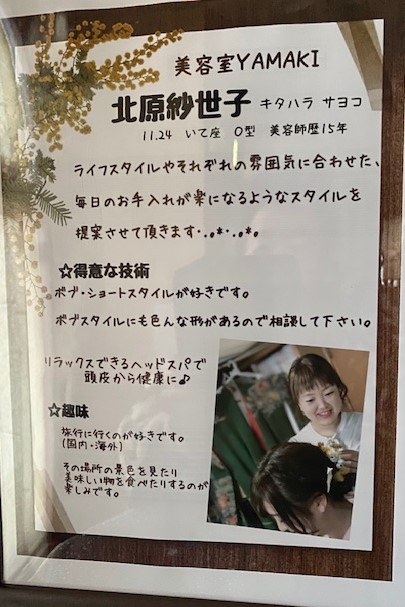 美容室YAMAKI
北原紗世子 キタハラ サヨコ
11.24 いて座 O型 美容師歴15年
ライフスタイルやそれぞれの雰囲気に合わせた、
毎日のお手入れが楽になるようなスタイルを
提案させて頂きます・.。*・.。*。
☆得意な技術
ボブ・ショートスタイルが好きです。
ボブスタイルにも色んな形があるので相談して下さい。
リラックスできるヘッドスパで
頭皮から健康に♪
☆趣味
旅行に行くのが好きです。
(国内・海外)
その場所の景色を見たり
美味しい物を食べたりするのが
楽しみです。